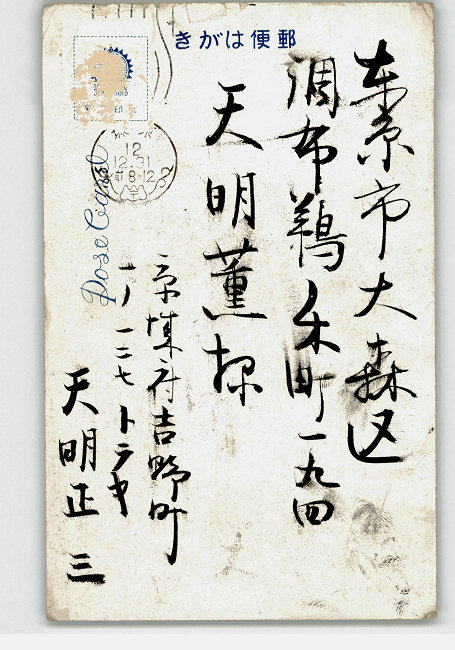 郵便はがき
東京市大森区
調布鵜ノ木町一九四
天明薫様
京城府吉野町
一ノ一二七 トラヤ
天明正三
Post Card
12
12.31
8-12